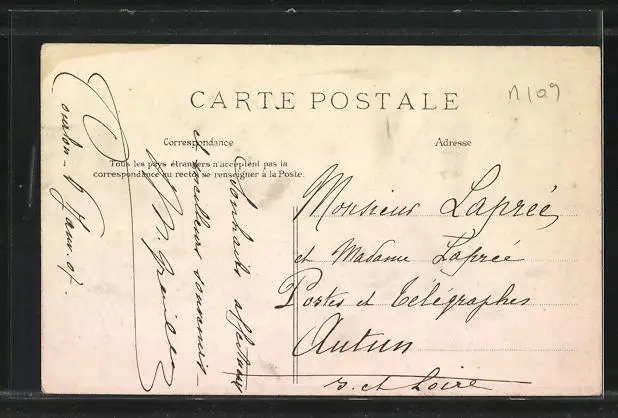 CARTE POSTALE
Correspondance
Tous les pays étrangers n'acceptent pas la
correspondance au recto, se renseigner à la Poste.
Adresse
Monsieur Laprée,
et Madame Laprée
Postes et Télégraphes
Autun
S. et Loire
Souhaits affectueux
et meilleurs souvenirs
Janv. 07.